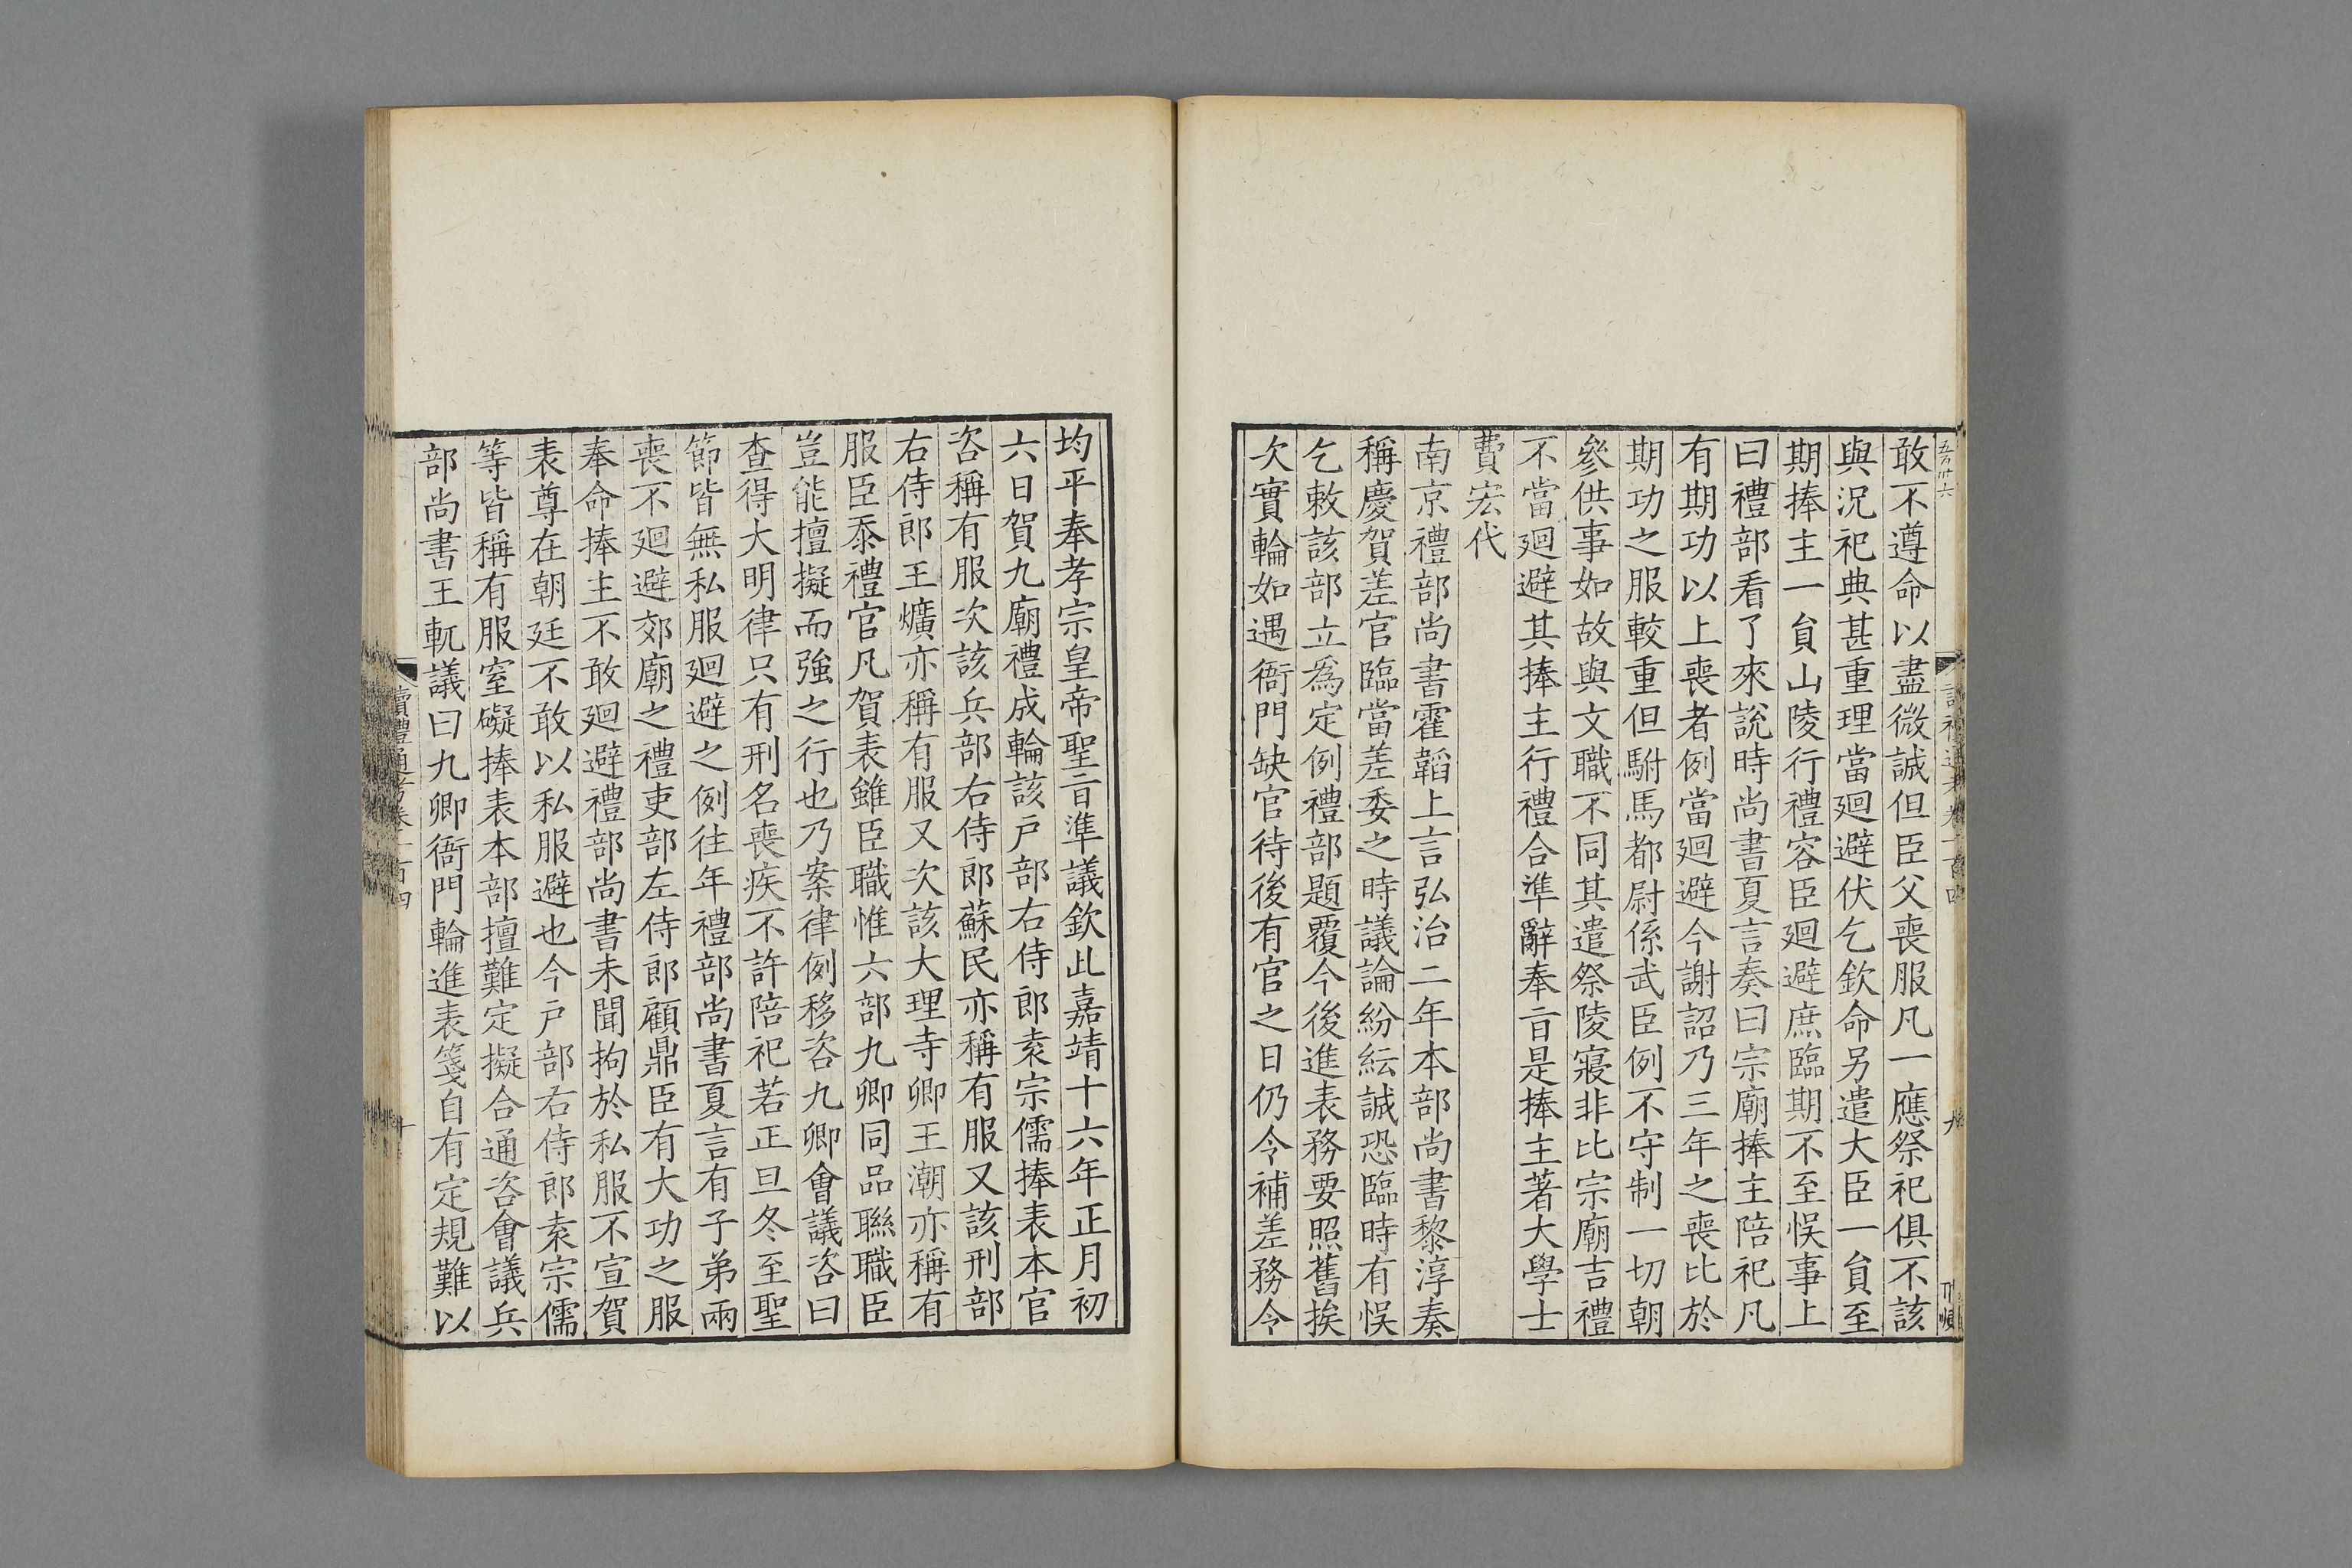 敢不遵命以盡微誠但臣父喪服凡一應祭祀俱不該
與況祀典甚重理當廻避伏乞欽命另遣大臣一員至
期捧主一員山陵行禮容臣廻避庶臨期不至悞事上
曰禮部看了來說時尚書夏言奏曰宗廟捧主陪祀凡
有期功以上喪者例當廻避今謝詔乃三年之喪比於
期功之服較重但駙馬都尉係武臣例不守制一切朝
參供事如故與文職不同其遣祭陵寢非比宗廟吉禮
不當廻避其捧主行禮合準辭奉旨是捧主著大學士
費宏代
南京禮部尚書霍韜上言弘治二年本部尚書黎淳奏
稱慶賀差官臨當差委之時議論紛紜誠恐臨時有悞
乞敕該部立爲定例禮部題覆今後進表務要照舊挨
次實輪如遇衙門缺官待後有官之日仍令補差務令
均平奉孝宗皇帝聖旨準議欽此嘉靖十六年正月初
六日賀九廟禮成輪該戶部右侍郎袁宗儒捧表本官
咨稱有服次該兵部右侍郎蘇民亦稱有服又該刑部
右侍郎王爌亦稱有服又次該大理寺卿王潮亦稱有
服臣忝禮官凡賀表雖臣職惟六部九卿同品聯職臣
豈能擅擬而強之行也乃案律例移咨九卿會議咨曰
查得大明律只有刑名喪疾不許陪祀若正旦冬至聖
節皆無私服廻避之例往年禮部尚書夏言有子弟兩
喪不廻避郊廟之禮吏部左侍郎顧鼎臣有大功之服
奉命捧主不敢廻避禮部尚書未聞拘於私服不宣賀
表尊在朝廷不敢以私服避也今戶部右侍郎袁宗儒
等皆稱有服窒礙捧表本部擅難定擬合通咨會議兵
部尚書王軏議曰九卿衙門輪進表箋自有定規難以
讀禮通考卷一百四